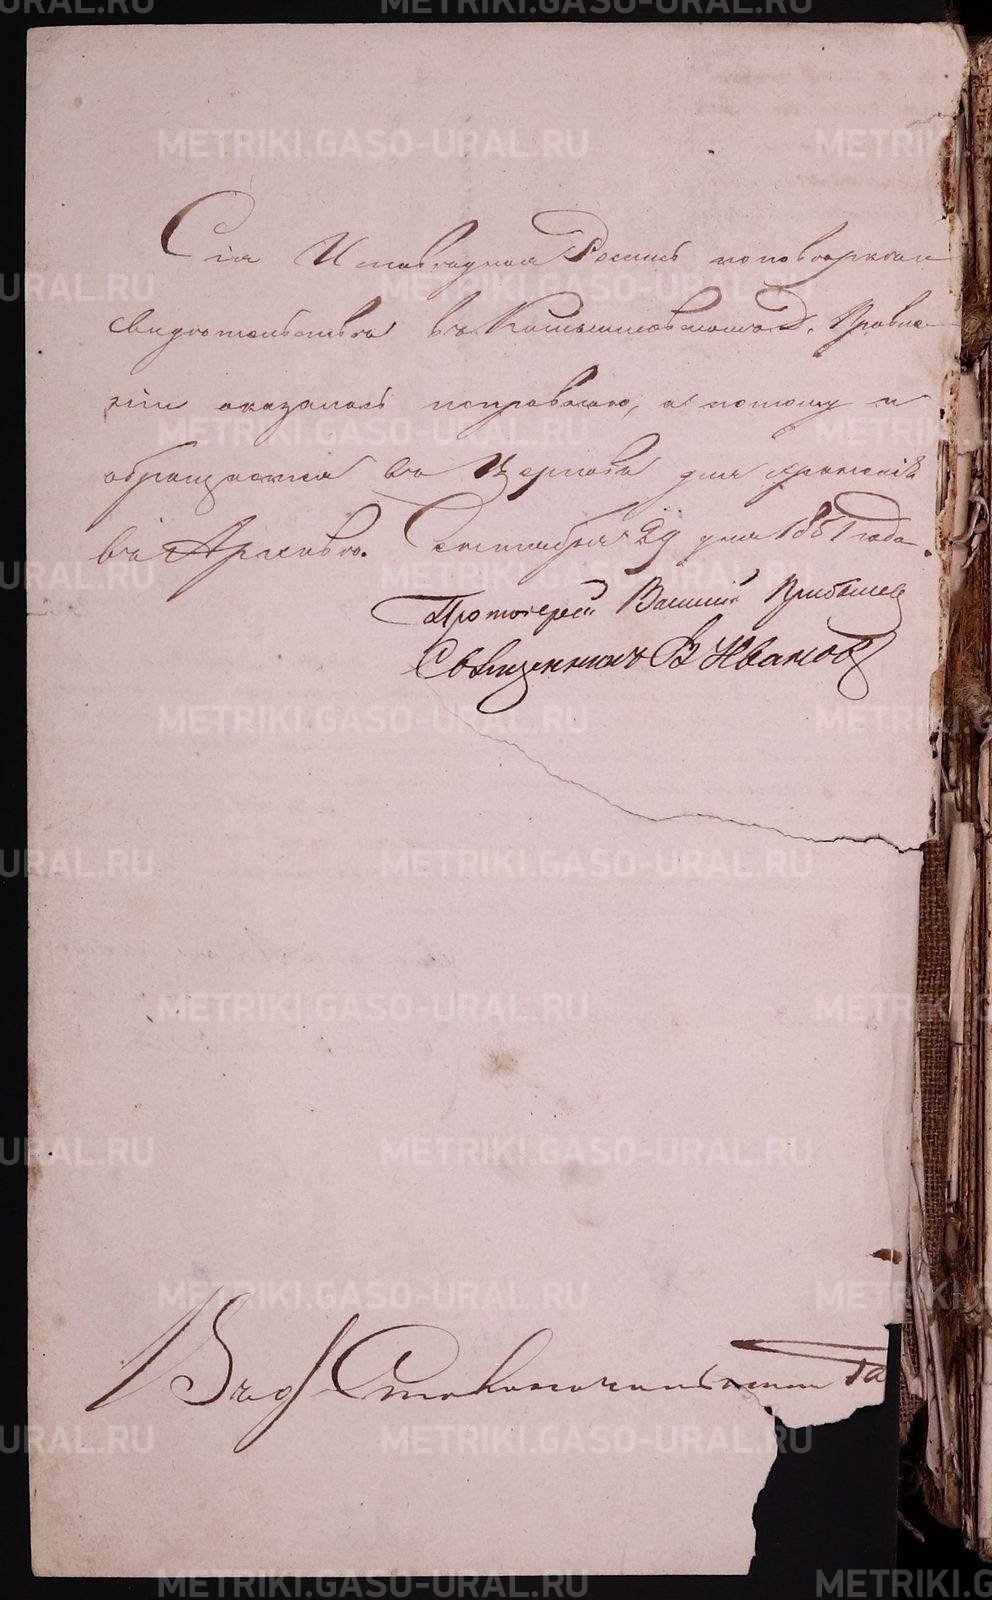 METRIKI.GASO-URAL.RU
Сія Исповѣдная Роспись по повѣркѣ и
свидѣтельствѣ въ Камышловскомъ Д. Правле-
ніи оказалась исправною, а потому и
обращается въ Церковь для храненія
въ Архивѣ. Сентября 29 дня 1851 года.
Протоіерей Василій
Священникъ В Иванов